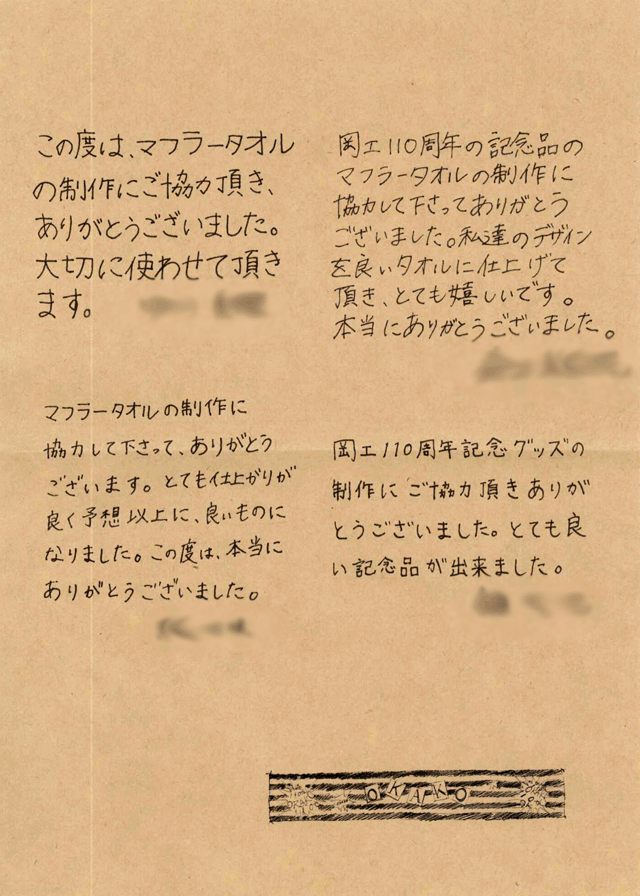 この度は、マフラータオル
の制作にご協力頂き、
ありがとうございました。
大切に使わせて頂き
ます。
岡工110周年の記念品の
マフラータオルの制作に
協力して下さってありがとう
ございました。私達のデザイン
を良いタオルに仕上げて
頂き、とても嬉しいです。
本当にありがとうございました。
マフラータオルの制作に
協力して下さって、ありがとう
ございます。とても仕上がりが
良く予想以上に、良いものに
なりました。この度は、本当に
ありがとうございました。
岡工110周年記念グッズの
制作にご協力頂きありが
とうございました。とても良
い記念品が出来ました。
OKAKO